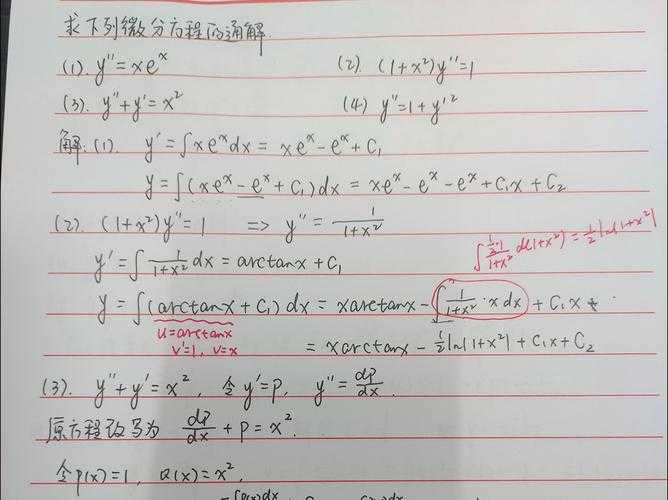 求下列微分方程的通解.
(1). y''=xeˣ (2). (1+x²)y''=1
(3). y''+y'=x² (4) y''=1+y'²
解:(1). y'=∫xeˣdx = xeˣ-eˣ+C₁
y=∫(xeˣ-eˣ+C₁)dx = xeˣ-eˣ-eˣ+C₁x+C₂
(2). (1+x²)y''=1 => y''=1/(1+x²)
y'=∫1/(1+x²)dx=arctanx+C₁
∫(½·1)/(1+x²) d(1+x²)=½ln|1+x²|
y=∫(arctanx+C₁)dx = xarctanx-∫1/(1+x²)·xdx+C₁x+
u=arctanx
v'=1, v=x
= xarctanx-½ln|1+x²|+C₁x+C₂
(3). y''+y'=x², 令y'=p, y''=dp/dx.
原方程改写为 dp/dx+p=x².
令p(x)=1, Q(x)=x²,